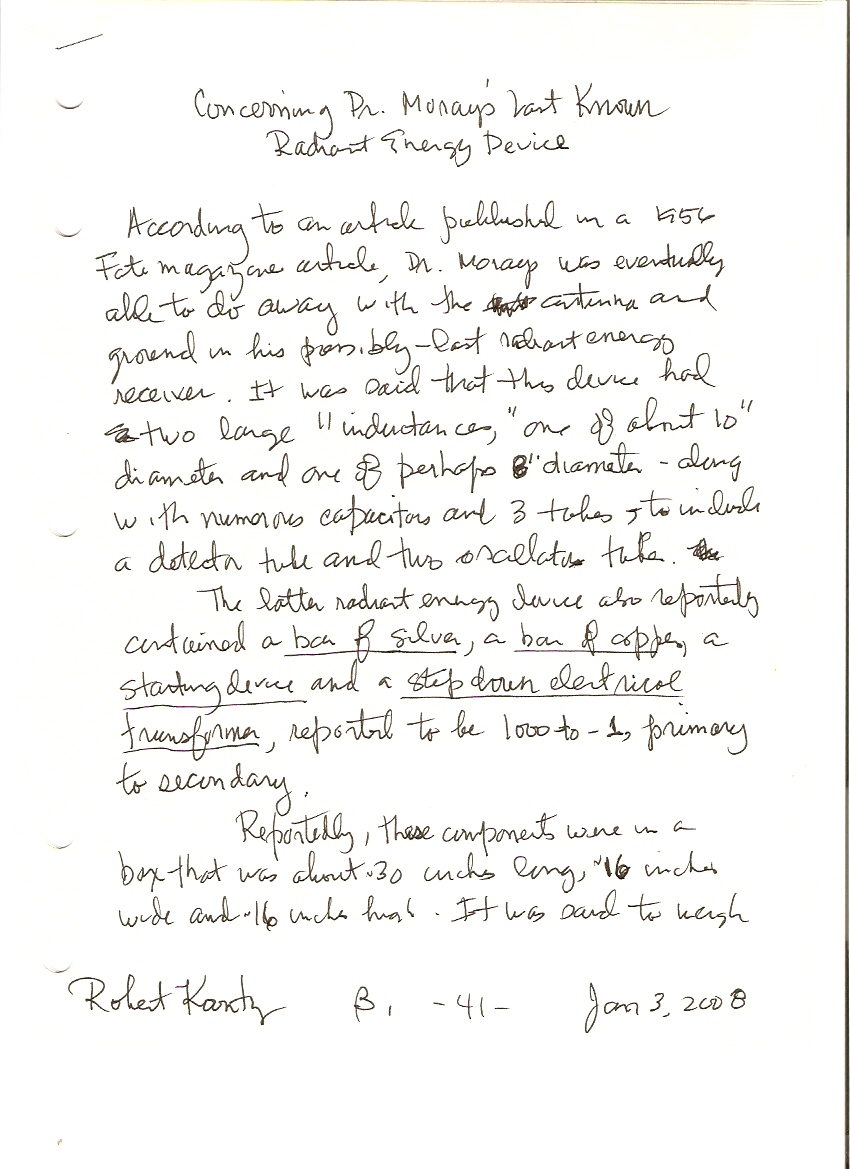 Concerning Dr. Moray's Last Known
Radiant Energy Device
According to an article published in a 1956
Fate magazine article, Dr. Moray was eventually
able to do away with the antenna and
ground in his possibly-last radiant energy
receiver. It was said that this device had
two large "inductances," one of about 10"
diameter and one of perhaps 8" diameter - along
with numerous capacitors and 3 tubes, to include
a detector tube and two oscillator tube.
The latter radiant energy device also reportedly
contained a bar of silver, a bar of copper, a
starting device and a step down electrical
transformer, reported to be 1000 to -1, primary
to secondary.
Reportedly, these components were in a
box that was about ~30 inches long, ~16 inches
wide and ~16 inches high. It was said to weigh
Robert Kantz B, -41- Jan 3, 2008